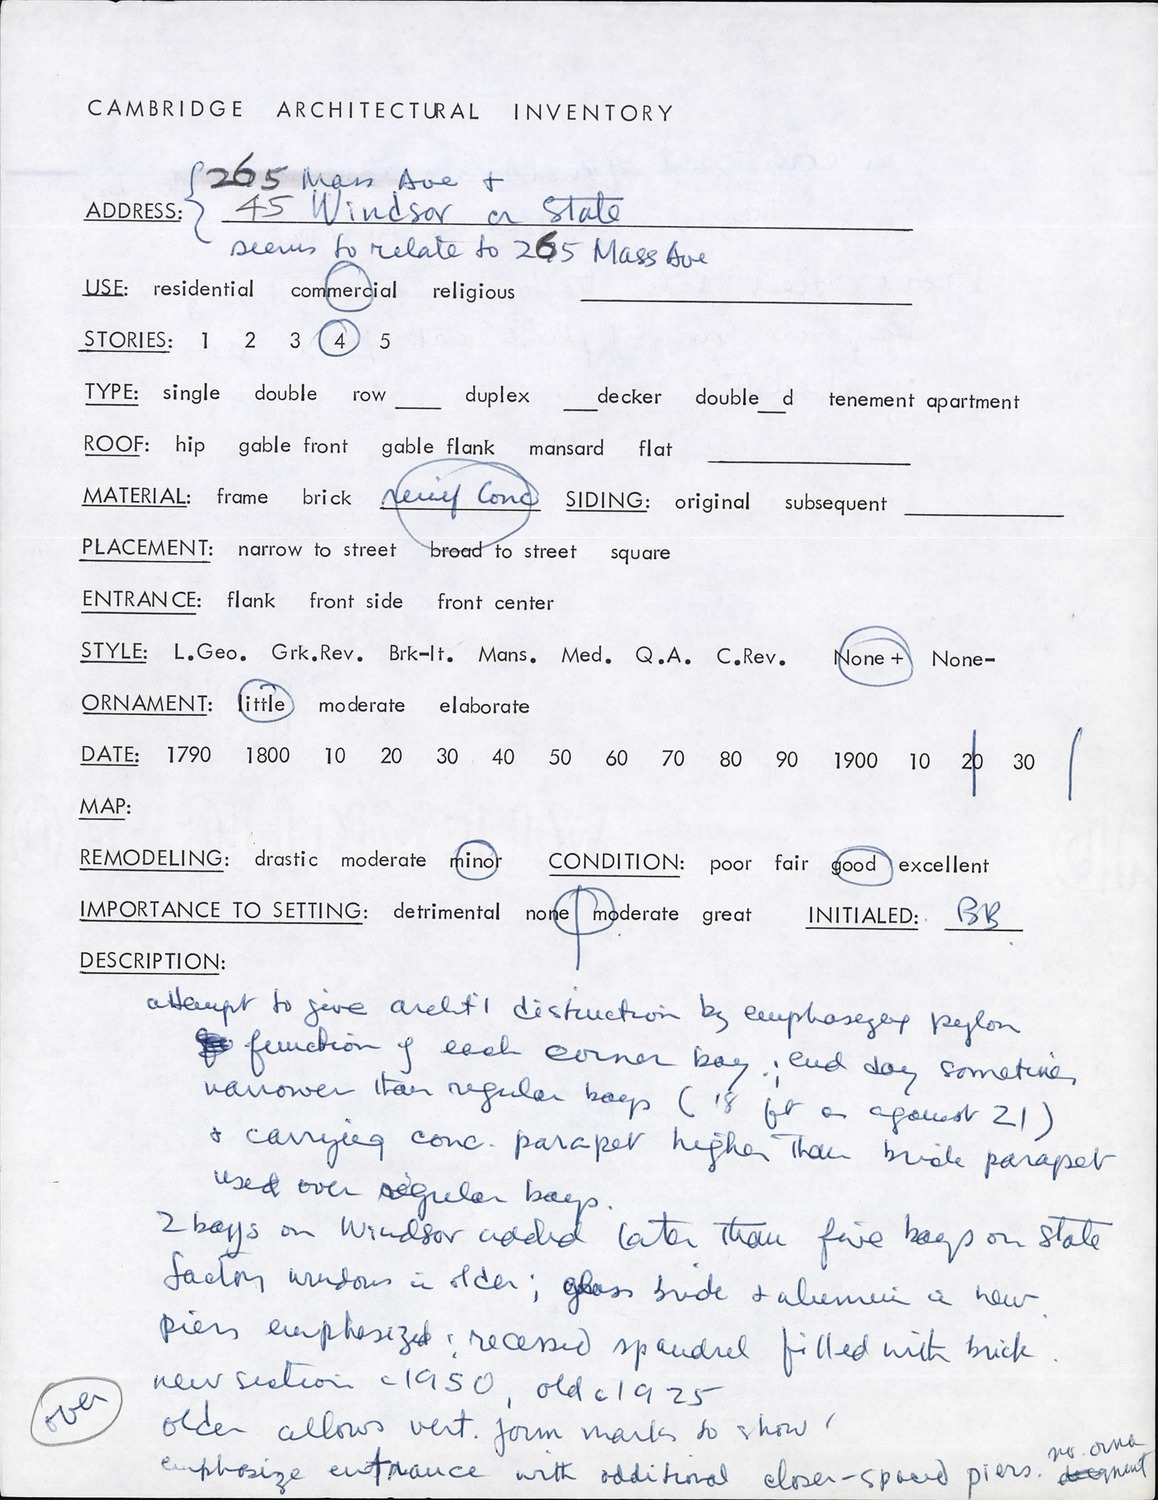 CAMBRIDGE ARCHITECTURAL INVENTORY
265 Mass Ave +
ADDRESS: 45 Windsor or State
seems to relate to 265 Mass Ave
USE: residential commercial religious
STORIES: 1 2 3 4 5
TYPE: single double row ___ duplex ___decker double__d tenement apartment
ROOF: hip gable front gable flank mansard flat
MATERIAL: frame brick reinf Conc SIDING: original subsequent
PLACEMENT: narrow to street broad to street square
ENTRANCE: flank front side front center
STYLE: L.Geo. Grk.Rev. Brk-It. Mans. Med. Q.A. C.Rev. None + None-
ORNAMENT: little moderate elaborate
DATE: 1790 1800 10 20 30 40 50 60 70 80 90 1900 10 20 30
MAP:
REMODELING: drastic moderate minor CONDITION: poor fair good excellent
IMPORTANCE TO SETTING: detrimental none moderate great INITIALED: BB
DESCRIPTION:
attempt to give archt'l distinction by emphasizing pylon
function of each corner bay; end bay sometimes
narrower than regular bays (18 ft as against 21)
+ carrying conc. parapet higher than brick parapet
used over regular bays.
2 bays on Windsor added later than five bays on State
factory windows in older; glass brick + in new.
piers emphasized; recessed spandrel filled with brick.
new section c1950, old c1925
older allows vert. form marks to show
emphasize entrance with additional closer-spaced piers. no orna
ment
over